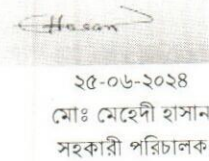 Hasan
২৫-০৬-২০২৪
মোঃ মেহেদী হাসান
সহকারী পরিচালক